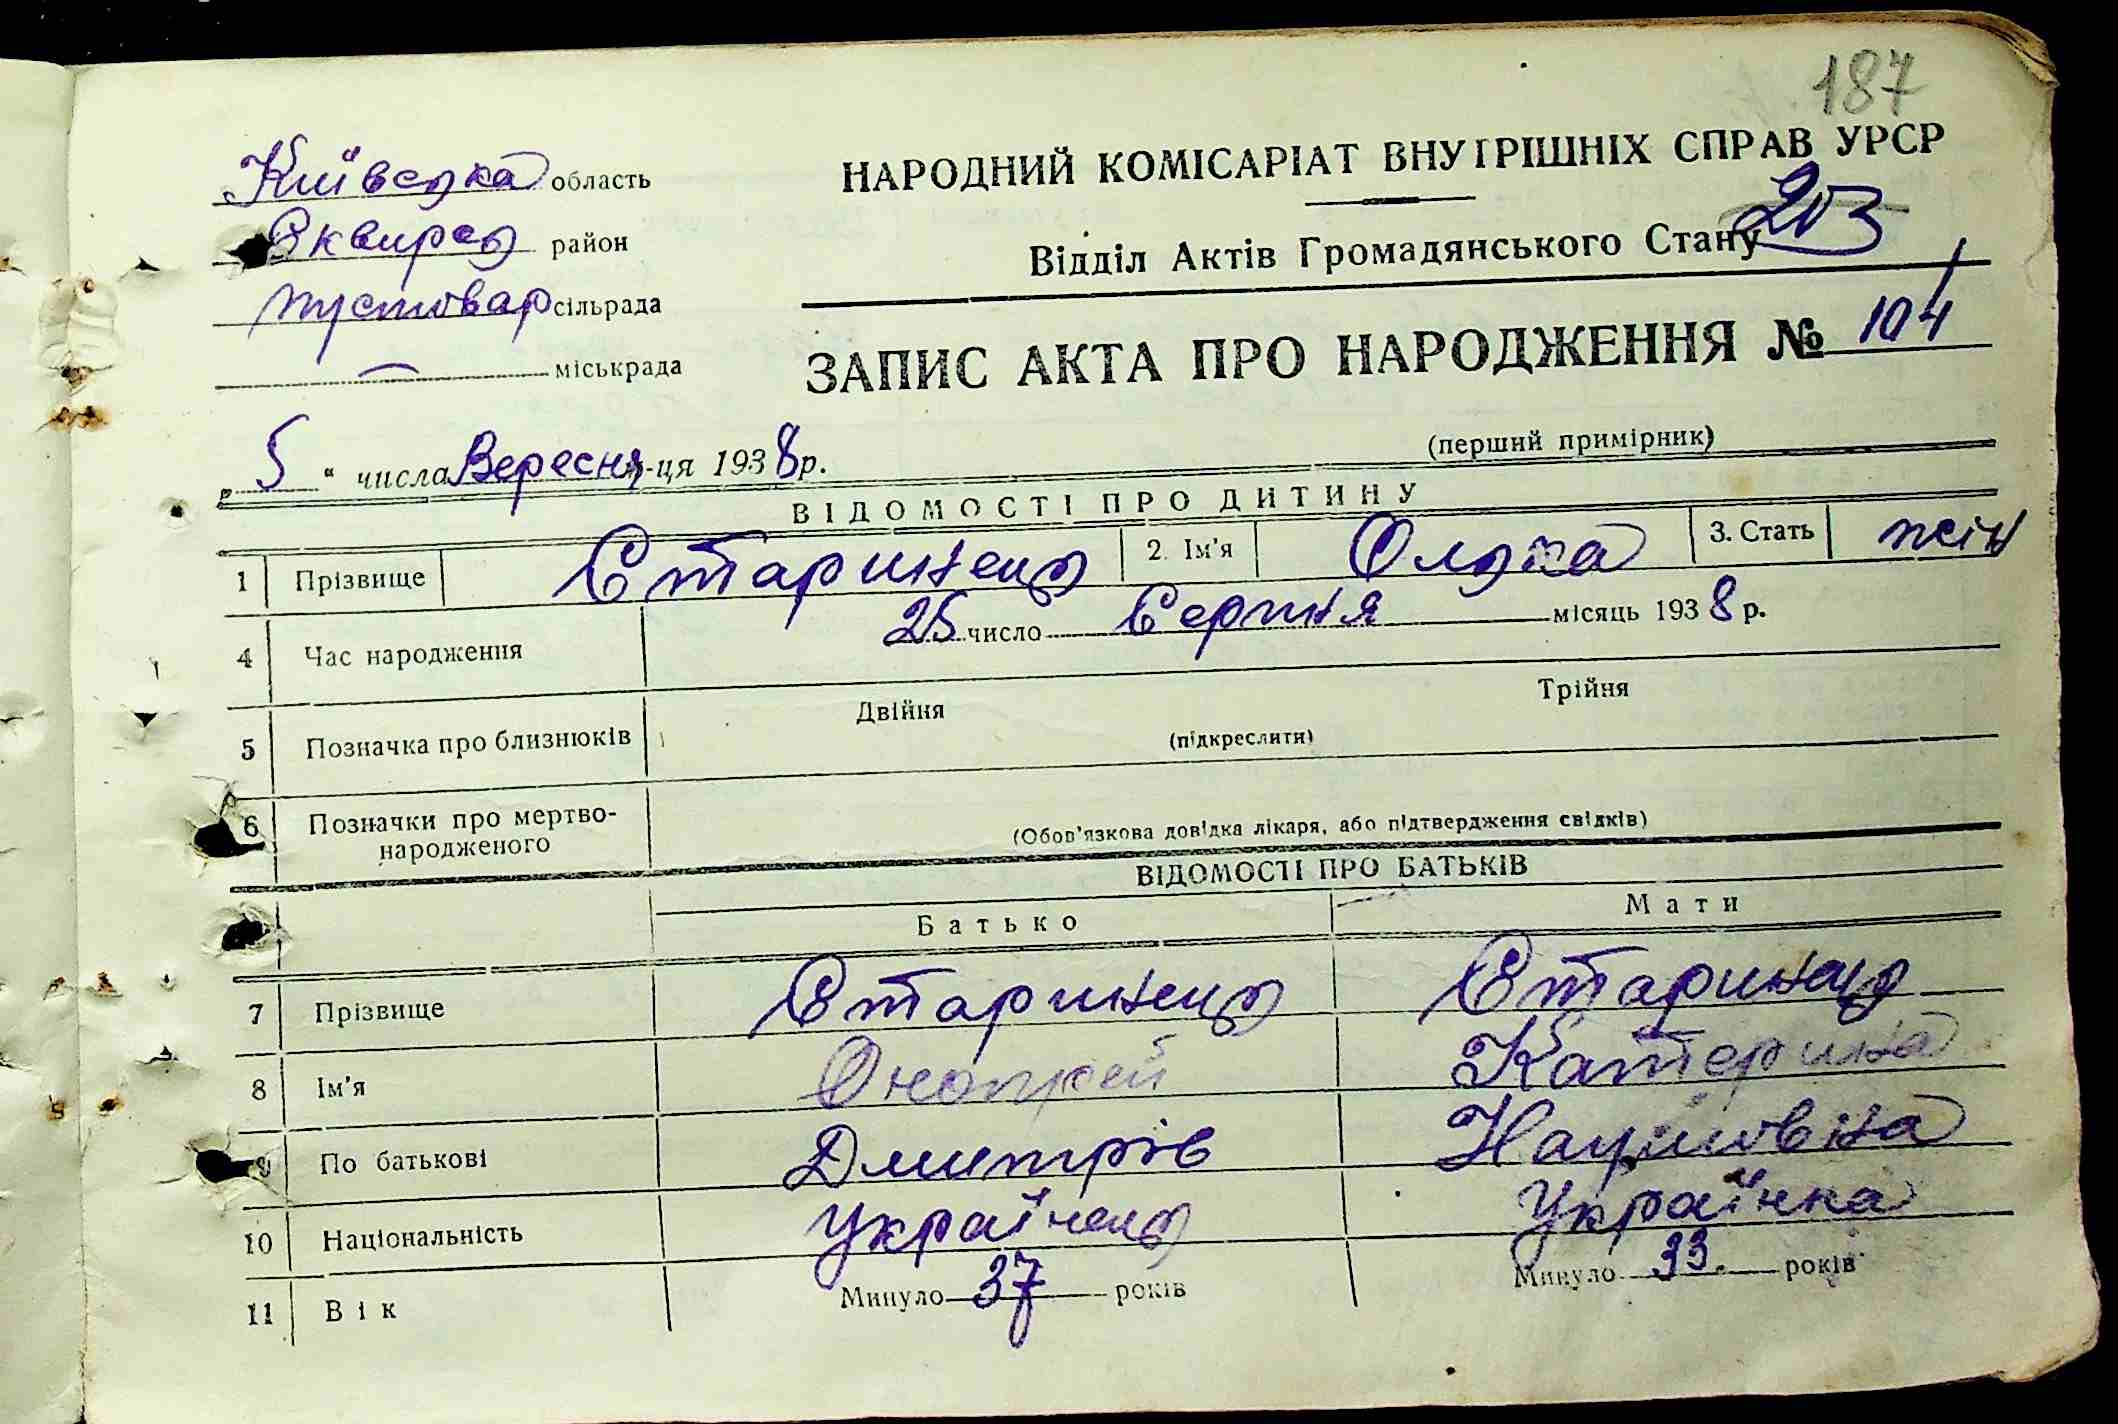 187
Київська область
НАРОДНИЙ КОМІСАРІАТ ВНУТРІШНІХ СПРАВ УРСР
Сквирсь район
203
Відділ Актів Громадянського Стану
пустовар сільрада
міськрада
ЗАПИС АКТА ПРО НАРОДЖЕННЯ № 104
(перший примірник)
„ 5 “ числа Вересня м-ця 1938 р.
ВІДОМОСТІ ПРО ДИТИНУ
1 Прізвище Старинець 2. Ім'я Олька 3. Стать жін
4 Час народження 25 число Серпня місяць 1938 р.
5 Позначка про близнюків Двійня Трійня
(підкреслити)
6 Позначки про мертво-
народженого
(Обов'язкова довідка лікаря, або підтвердження свідків)
ВІДОМОСТІ ПРО БАТЬКІВ
Батько Мати
7 Прізвище Старинець Старинець
8 Ім'я Онопрей Катерина
9 По батькові Дмитрів Наумовна
10 Національність Українець Українка
11 Вік Минуло 37 років Минуло 33. років